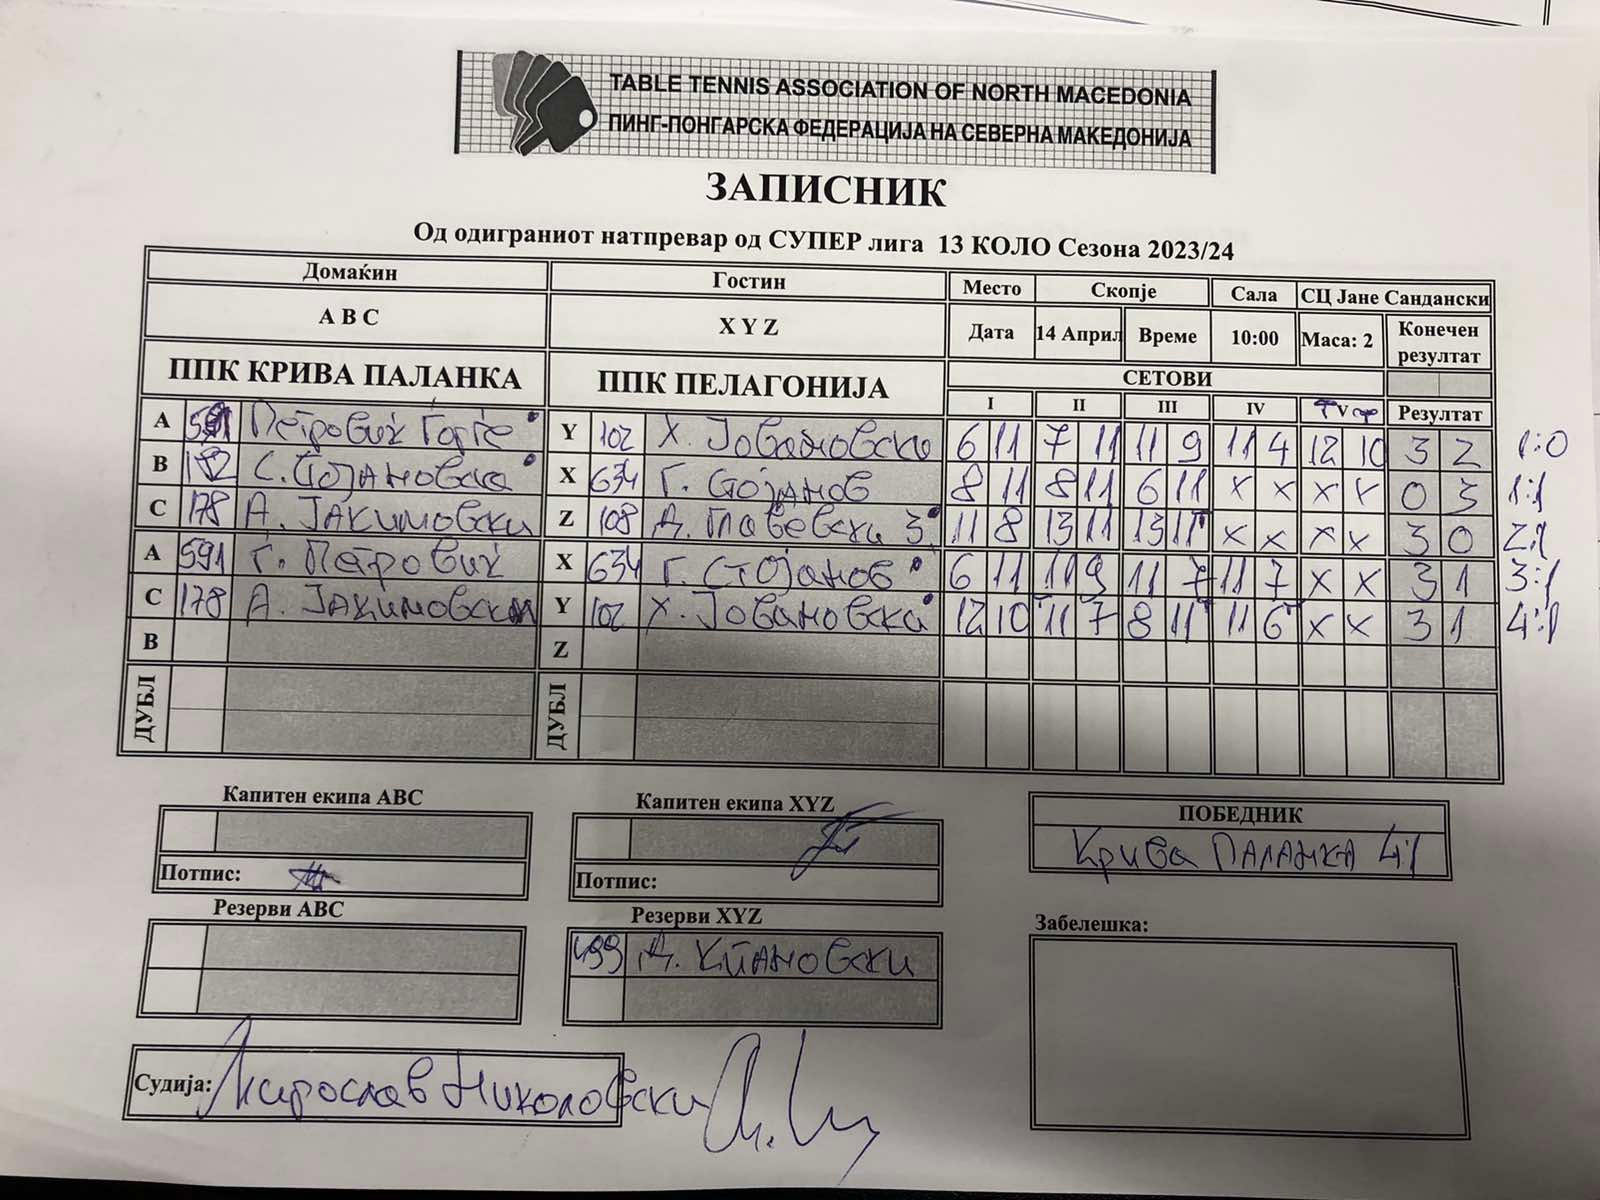 TABLE TENNIS ASSOCIATION OF NORTH MACEDONIA
ПИНГ-ПОНГАРСКА ФЕДЕРАЦИЈА НА СЕВЕРНА МАКЕДОНИЈА
ЗАПИСНИК
Од одиграниот натпревар од СУПЕР лига 13 КОЛО Сезона 2023/24
Домаќин Гостин Место Скопје Сала СЦ Јане Сандански
A B C X Y Z Дата 14 Април Време 10:00 Маса: 2 Конечен резултат
ППК КРИВА ПАЛАНКА ППК ПЕЛАГОНИЈА СЕТОВИ
I II III IV V Резултат
A 591 Петровиќ Ѓорѓе Y 102 Х. Јовановски 6 11 7 11 11 9 11 4 12 10 3 2 1:0
B С. Стојановска X 634 Г. Стојанов 8 11 8 11 6 11 x x x x 0 3 1:1
C 178 А. Јакимовски Z 108 Д. 11 8 13 11 13 11 x x x x 3 0 2:1
A 591 Ѓ. Петровиќ X 634 Г. Стојанов 6 11 11 9 11 7 11 7 x x 3 1 3:1
C 178 А. Јакимовски Y 102 Х. Јовановски 12 10 11 7 8 11 11 6 x x 3 1 4:1
B Z
ДУБЛ ДУБЛ
Капитен екипа ABC Капитен екипа XYZ ПОБЕДНИК
Крива Паланка 4:1
Потпис: Потпис:
Резерви ABC Резерви XYZ Забелешка:
499
Судија: Мирослав Николовски